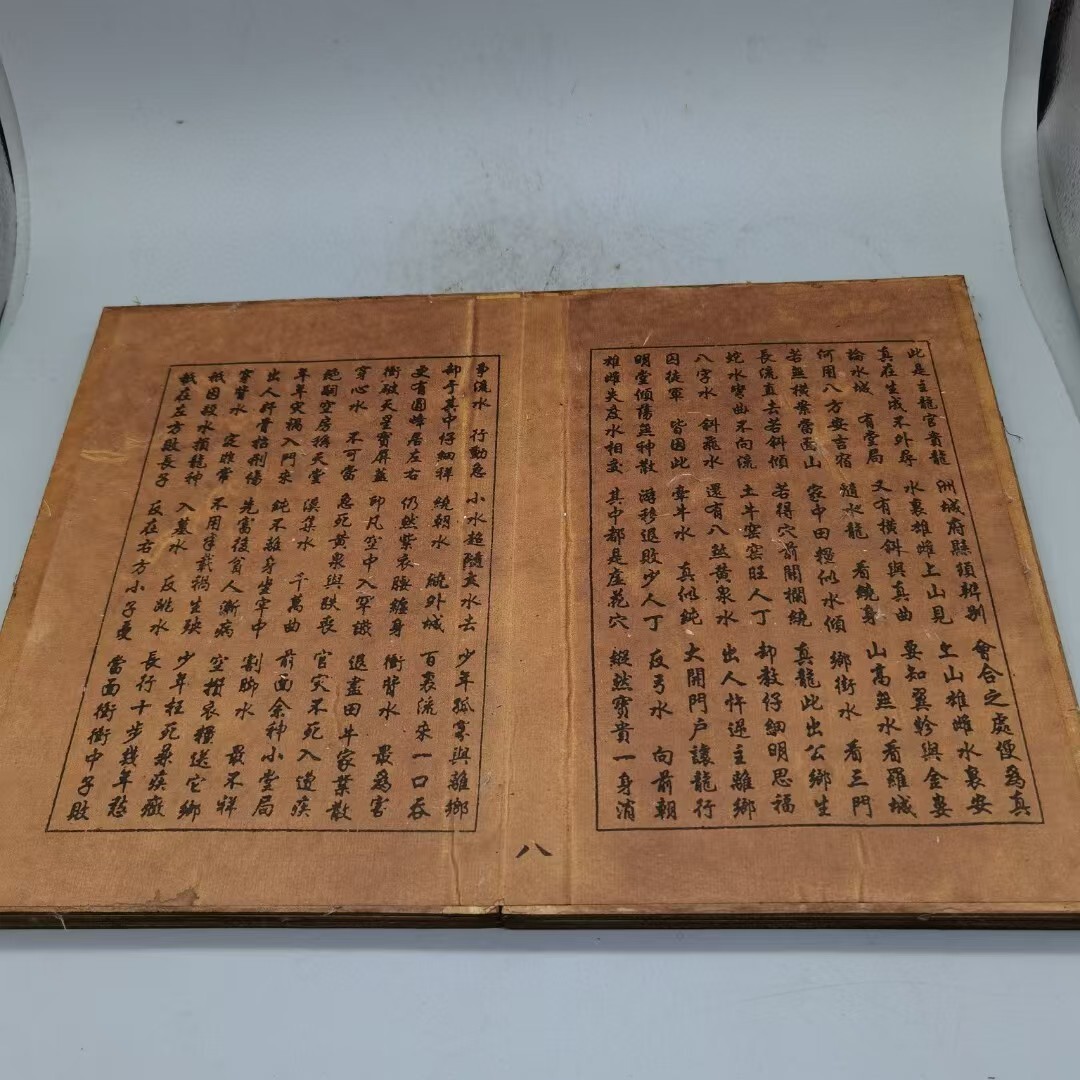 此是主龍官貴龍 洲城府縣須辨别 會合之處便為真
真在生成不外尋 水裏雄雌上山見 上山雄雌水裏安
論水城 有堂局 又有橫斜與真曲 要知翼軫與金婁
何用八方安吉宿 隨水龍 看繞身 山高無水看羅城
若無橫案當面山 家中田糧似水傾 鄉衝水 看三門
長流直去若斜傾 若得穴前開欄繞 真龍此出公鄉生
蛇水彎曲不向流 土牛窑窑旺人丁 却教仔細明思福
八字水 斜飛水 還有八煞黄泉水 出人忤逆主離鄉
囚徒軍 皆因此 牽牛水 真似純 大開門户讓龍行
明堂傾瀉無种散 游移退敗少人丁 反弓水 向前朝
雄雌失度水相交 其中都是虛花穴 縱然寶貴一身消
弔流水 行動急 小水超隨衣水去 少年孤寡與離鄉
却于其中仔細祥 繞朝水 繞外城 百裏流來一口吞
更有圓峰居左右 仍然紫衣腰纏身 衝背水 最為害
衝破天星寶屏蓋 即凡空中入罕識 退盡田牛家業散
穿心水 不可當 急死黄泉與跌喪 官灾不死入遭痍
絕嗣空房稱天堂 溪集水 千萬曲 前面余种小堂局
年年灾禍入門來 純不離身坐牢中 割脚水 最不祥
出人奸骨招刑傷 先富後貧人漸病 空攢衣糧送它鄉
穿背水 定非常 不用半載禍生殃 少年枉死暴疾癥
祇因殺水損龍神 入墓水 反跳水 長行十步幾年愁
祇在左方敗長子 反在右方小子憂 當面衝衝中子敗
八